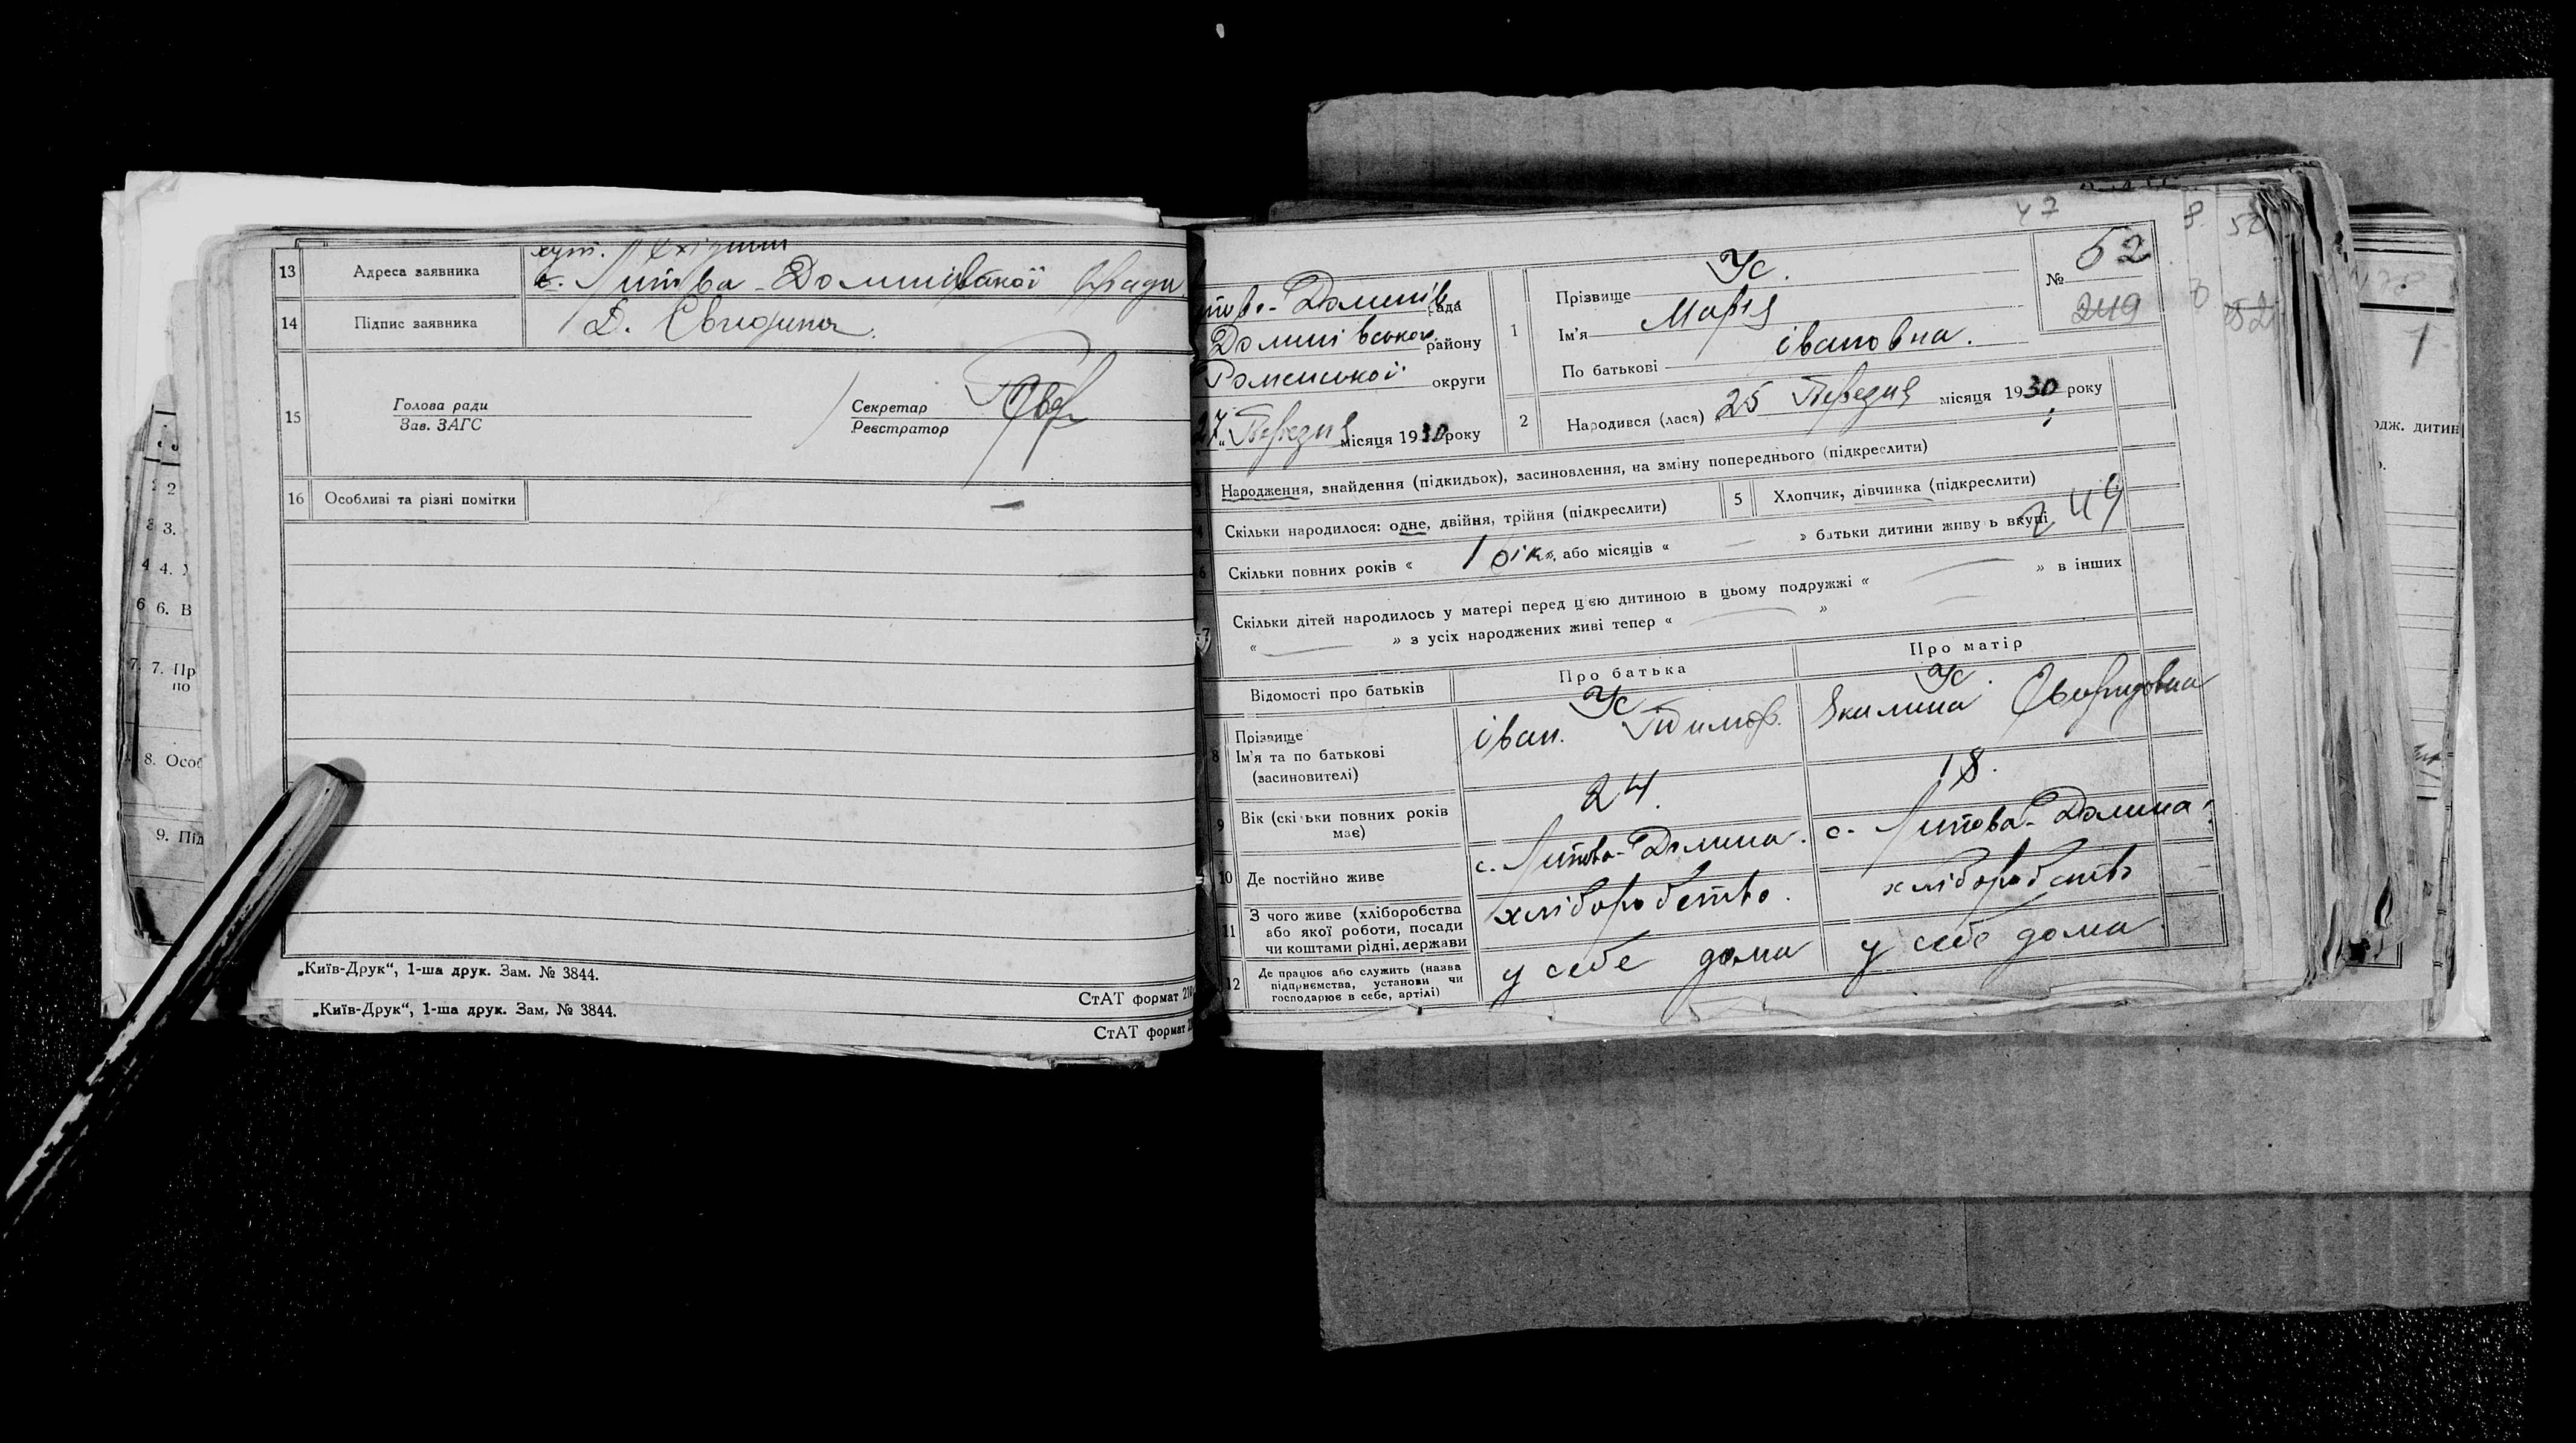 13 Адреса заявника хут.
с. Липова-Долинської Ради
14 Підпис заявника Д.
15 Голова ради
Зав. ЗАГС
Секретар
Реєстратор
16 Особливі та різні помітки —
„Київ-Друк“, 1-ша друк. Зам. № 3844.
СтАТ формат 210
„Київ-Друк“, 1-ша друк. Зам. № 3844.
СтАТ формат
2
3.
4 4.
6 6. В
7. 7. Пр
по
8. Особ
9. Під
47
Долинів. рада
Долинівського району
Роменської округи
27 Березня місяця 1930 року
1 Прізвище Ус.
Ім'я Марія
По батькові івановна.
№ 52
249
2 Народився (лася) 25 Березня місяця 1930 року
3 Народження, знайдення (підкидьок), засиновлення, на зміну попереднього (підкреслити)
4 Скільки народилося: одне, двійня, трійня (підкреслити) 5 Хлопчик, дівчинка (підкреслити)
6 Скільки повних років « 1 рік », або місяців « — » батьки дитини живуть вкупі 249
7 Скільки дітей народилось у матері перед цією дитиною в цьому подружжі « — » в інших
« — » з усіх народжених живі тепер « — »
Відомості про батьків Про батька Про матір
8 Прізвище
Ім'я та по батькові
(засиновителі)
Ус
іван. Тимоф.
Ус.
Якилина
9 Вік (скільки повних років
має)
24.
18.
10 Де постійно живе с. Липова-Долина. с. Липова-Долина.
11 З чого живе (хліборобства
або якої роботи, посади
чи коштами рідні, держави
хліборобство.
хліборобство
12 Де працює або служить (назва
підприємства, установи чи
господарює в себе, артілі)
у себе дома
у себе дома
одж. дитин